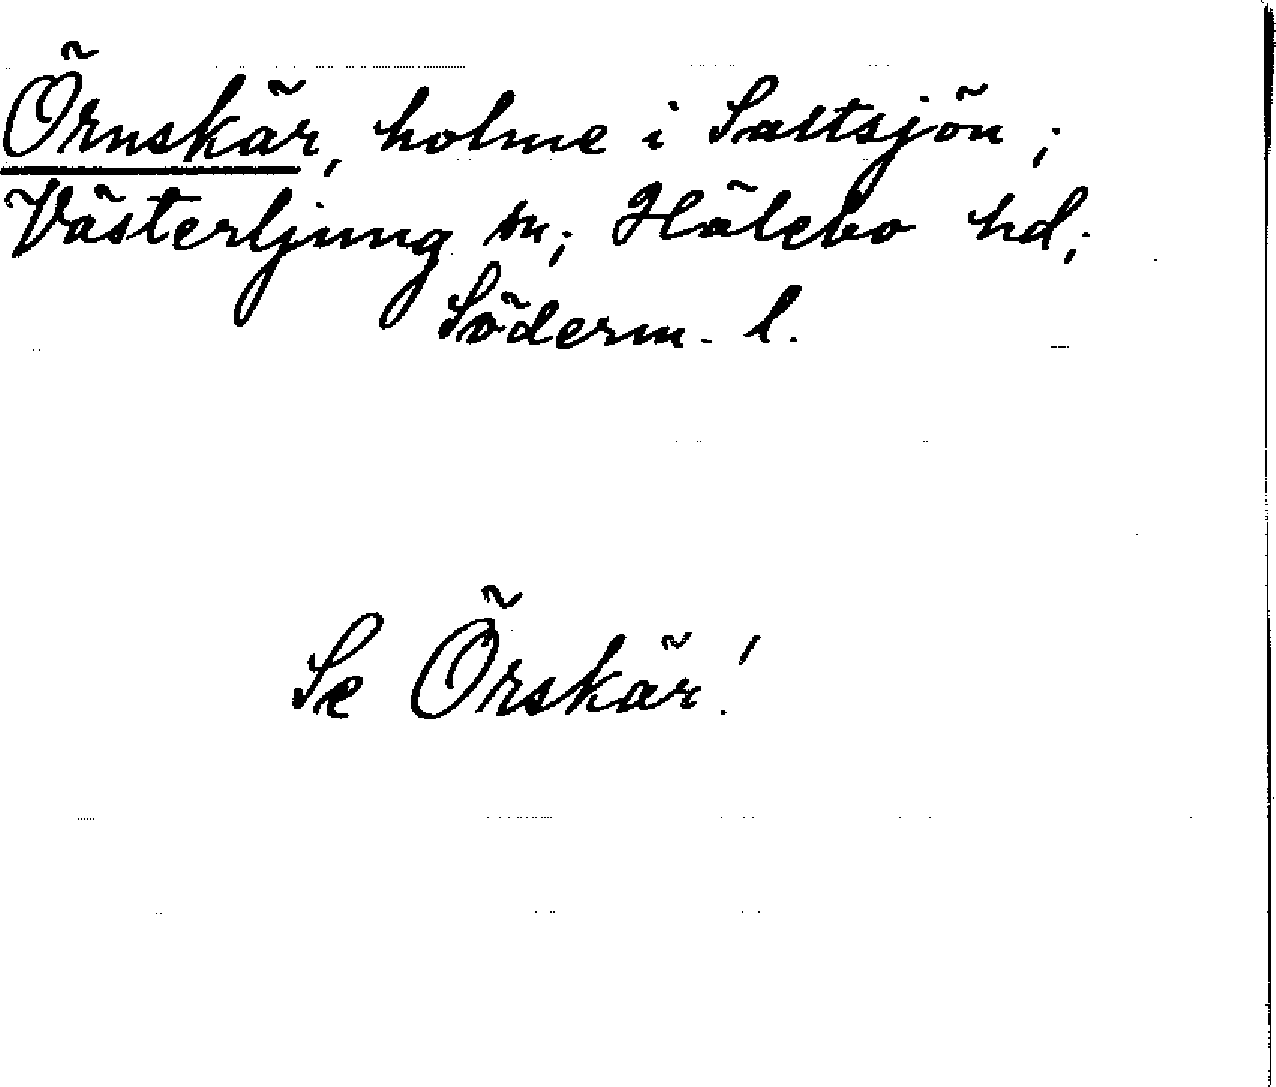 Örnskär, holme i Saltsjön;
Västerljung sn; Hölebo hd;
Söderm. l.
Se Örskär!